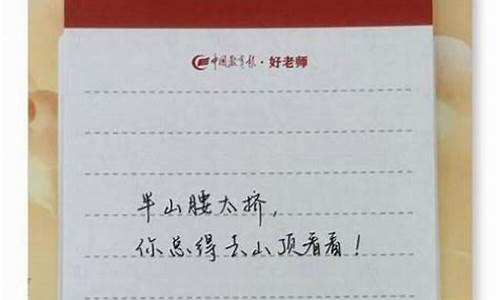 中国教育报·好老师
半山腰太挤，
你总得去山顶看看！